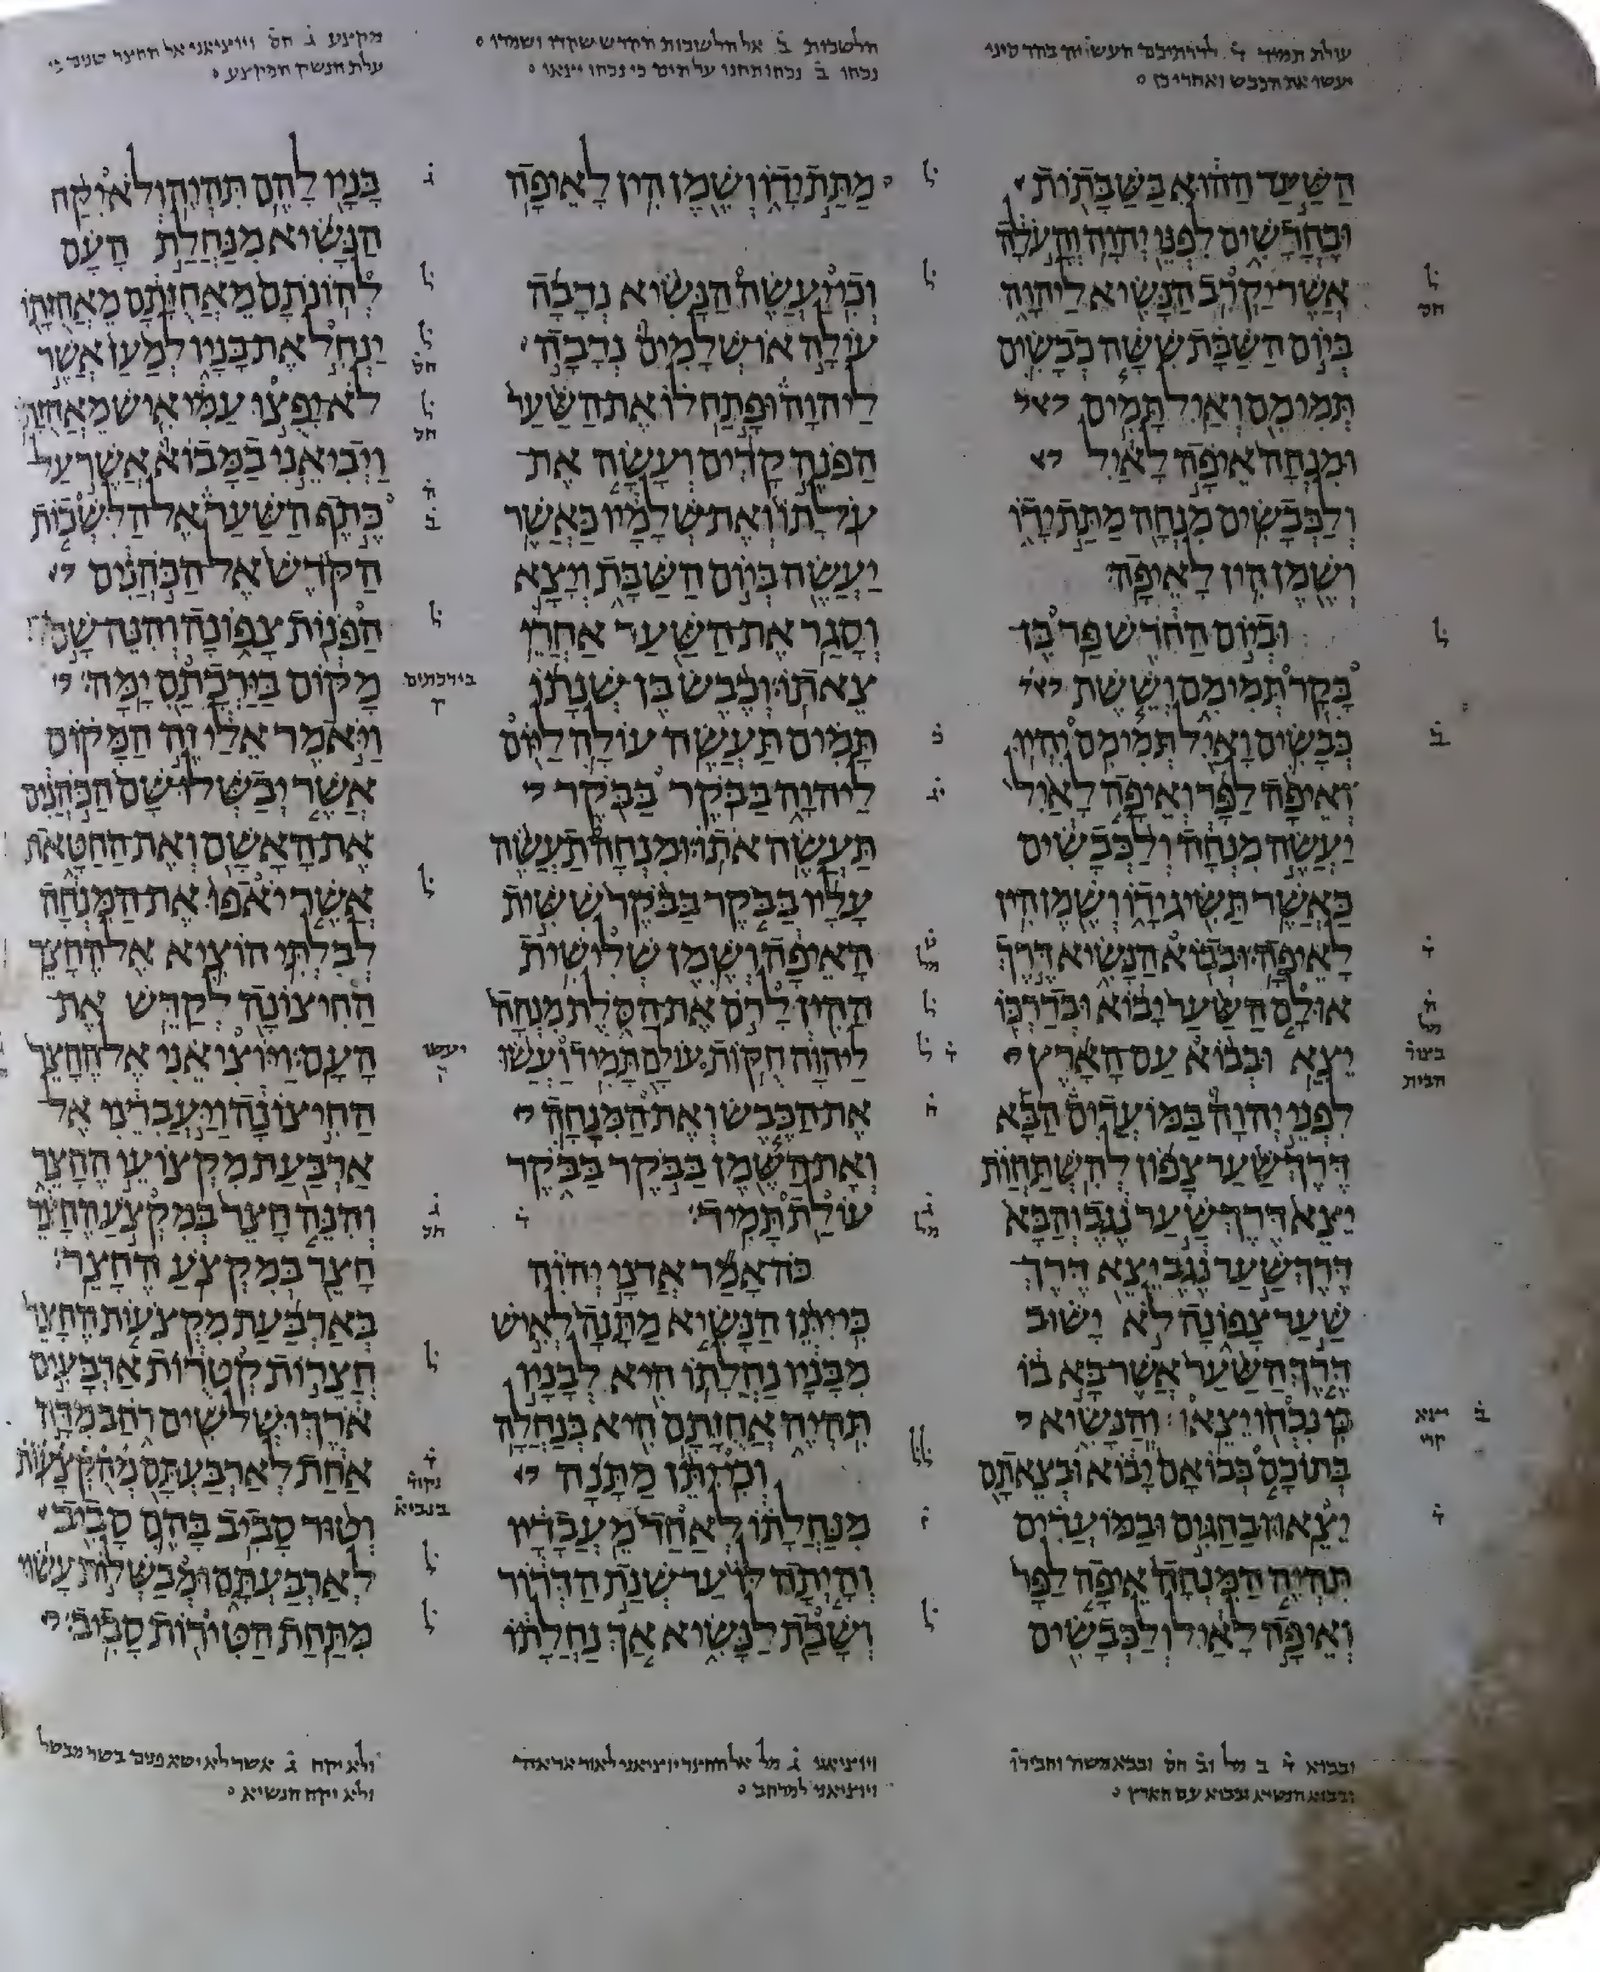 עולת תמיד ד לדרתיכם העשויה בהר סיני
יעשו את הכבש ואחריו
הלשכות ב אל הלשכות הקדש
נכחו ב נכחו תחנו על הים כי נכחו יצאו
מקצע ג חס ויוציאני אל החצר
השער ההוא בשבתות
ובחדשים לפני יהוה והעלה
אשר יקרב הנשיא ליהוה
ביום השבת ששה כבשים
תמימם ואיל תמים
ומנחה איפה לאיל
ולכבשים מנחה מתת ידו
ושמן הין לאיפה
וביום החדש פר בן
בקר תמימם וששת
כבשים ואיל תמימם יהיו
ואיפה לפר ואיפה לאיל
יעשה מנחה ולכבשים
כאשר תשיג ידו ושמן הין
לאיפה ובבוא הנשיא דרך
אולם השער יבוא ובדרכו
יצא ובבוא עם הארץ
לפני יהוה במועדים הבא
דרך שער צפון להשתחות
יצא דרך שער נגב והבא
דרך שער נגב יצא דרך
שער צפונה לא ישוב
דרך השער אשר בא בו
כי נכחו יצאו והנשיא
בתוכם בבואם יבוא ובצאתם
יצאו ובחגים ובמועדים
תהיה המנחה איפה לפר
ואיפה לאיל ולכבשים
מתת ידו ושמן הין לאיפה
וכי יעשה הנשיא נדבה
עולה או שלמים נדבה
ליהוה ופתח לו את השער
הפנה קדים ועשה את
עלתו ואת שלמיו כאשר
יעשה ביום השבת ויצא
וסגר את השער אחרי
צאתו וכבש בן שנתו
תמים תעשה עולה ליום
ליהוה בבקר בבקר
תעשה אתו ומנחה תעשה
עליו בבקר בבקר ששית
האיפה ושמן שלישית
ההין לרס את הסלת מנחה
ליהוה חקות עולם תמיד ועשו
את הכבש ואת המנחה
ואת השמן בבקר בבקר
עולת תמיד
כה אמר אדני יהוה
כי יתן הנשיא מתנה לאיש
מבניו נחלתו היא לבניו
תהיה אחזתם היא בנחלה
וכי יתן מתנה
מנחלתו לאחד מעבדיו
והיתה לו עד שנת הדרור
ושבת לנשיא אך נחלתו
בניו להם תהיה ולא יקח
הנשיא מנחלת העם
להונתם מאחזתם מאחזתו
ינחל את בניו למען אשר
לא יפצו עמי איש מאחזתו
ויביאני במבוא אשר על
כתף השער אל הלשכות
הקדש אל הכהנים
הפנות צפונה והנה שם
מקום בירכתם ימה
ויאמר אלי זה המקום
אשר יבשלו שם הכהנים
את האשם ואת החטאת
אשר יאפו את המנחה
לבלתי הוציא אל החצר
החיצונה לקדש את
העם ויוציאני אל החצר
החיצונה ויעברני אל
ארבעת מקצועי החצר
והנה חצר במקצע החצר
חצר במקצע החצר
בארבעת מקצעות החצר
חצרות קטרות ארבעים
ארך ושלשים רחב מדה
אחת לארבעתם מהקצעות
וטור סביב בהם סביב
לארבעתם ומבשלות עשוי
מתחת הטירות סביב
ובבוא ד ב מל וב חס ובבא משה
ובבוא הנשיא ובבוא עם הארץ
ויוציאני ג מל אל החצר יוציאני לאור אראה
ויוציאני למרחב
ולא יקח ג אשר לא ישא פנים בשר מבשל
ולא יקח הנשיא